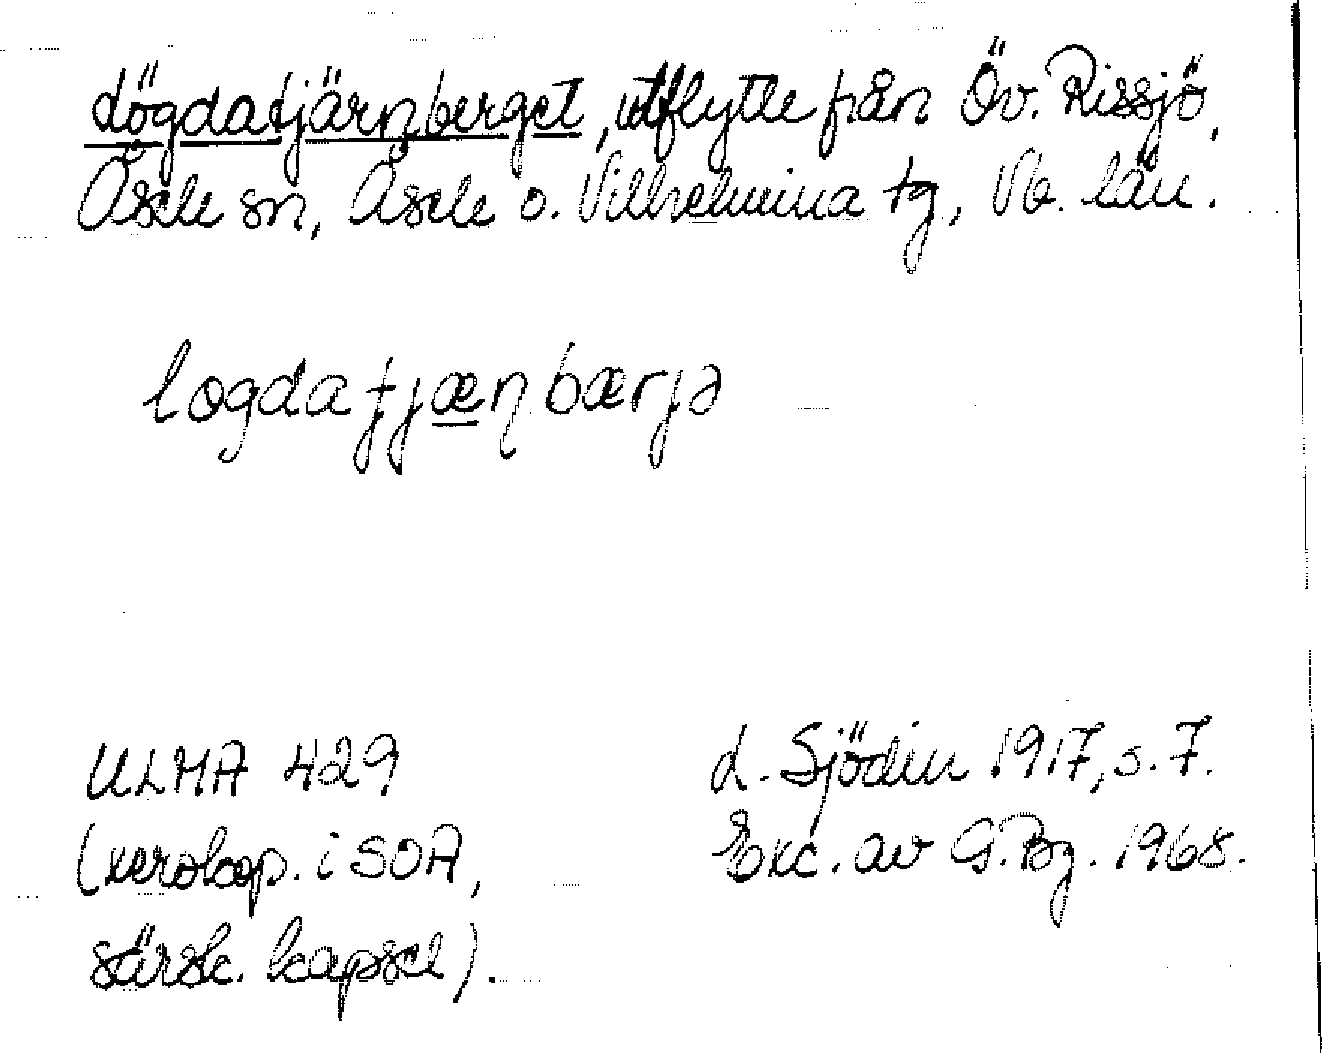 Lögdatjärnberget, utflytte från Öv. Rissjö,
Åsele sn, Åsele o. Vilhelmina tg, Vb. län.
logdatjænbærjə
ULMA 429
(xerokop. i SOA,
särsk. kapsel).
L. Sjödin 1917, s. 7.
Exc. av G.Bg. 1968.